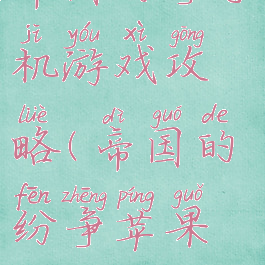 jī yóu xì gōng
机游戏攻
lüè dì guó de
略(帝国的
fēn zhēng píng guǒ
纷争苹果